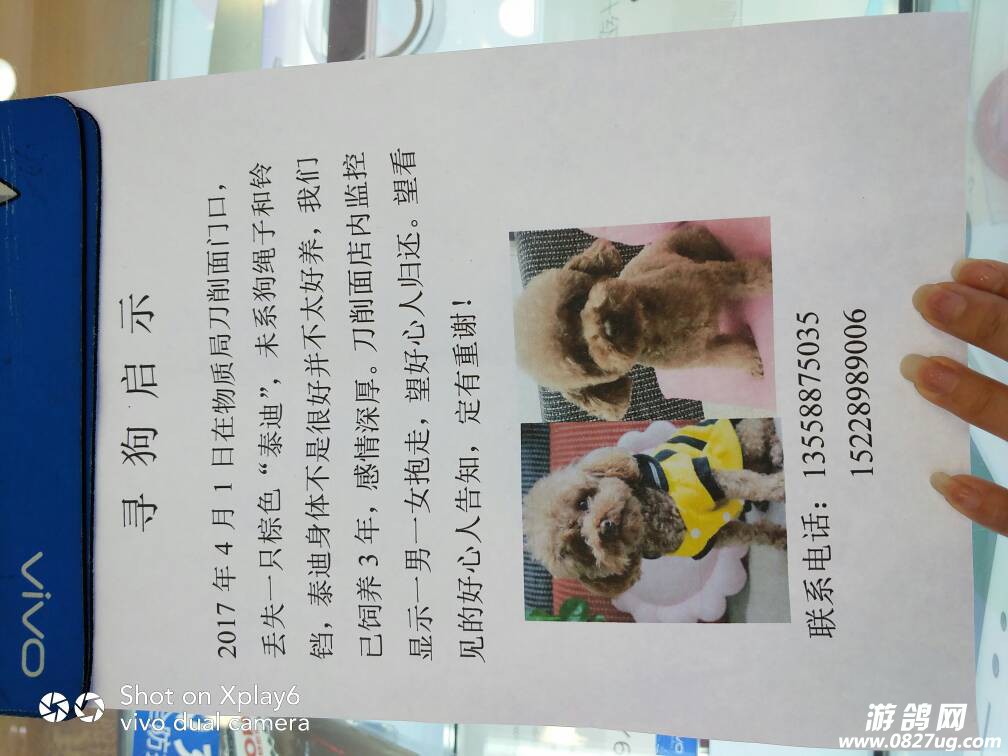 寻狗启示
2017年4月1日在物质局刀削面门口，
丢失一只棕色“泰迪”，未系狗绳子和铃
铛，泰迪身体不是很好并不太好养，我们
已饲养3年，感情深厚。刀削面店内监控
显示一男一女抱走，望好心人归还。望看
见的好心人告知，定有重谢！
联系电话：13558875035
15228989006
vivo
Shot on Xplay6
vivo dual camera
游鸽网
www.0827ug.com